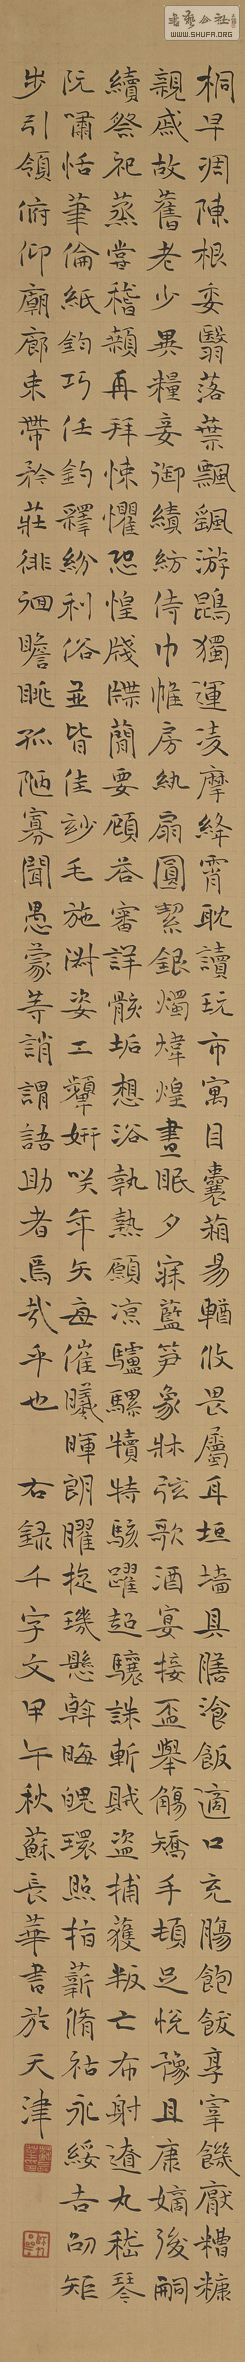 桐早凋陳根委翳落葉飄颻游鵾獨運凌摩絳霄耽讀玩市寓目囊葙易輶攸畏屬耳垣墻具膳飡飯適口充腸飽飫享宰饑厭糟糠
親戚故舊老少異糧妾御績紡侍巾帷房紈扇圓絜銀燭煒煌晝眠夕寐藍笋象牀弦歌酒宴接盃舉觴矯手頓足悅豫且康嫡後嗣
續祭祀蒸嘗稽顙再拜悚懼恐惶牋牒簡要顧答審詳骸垢想浴執熱願凉驢騾犢特駭躍超驤誅斬賊盜捕獲叛亡布射遼丸嵇琴
阮嘯恬筆倫紙鈞巧任釣釋紛利俗並皆佳妙毛施淑姿工顰妍咲年矢每催曦暉朗曜旋璣懸斡晦魄環照指薪脩祜永綏吉劭矩
步引領俯仰廟廊束帶矜莊徘徊瞻眺孤陋寡聞愚蒙等誚謂語助者焉哉乎也 右錄千字文甲午秋蘇長華書於天津
WWW.SHUFA.ORG